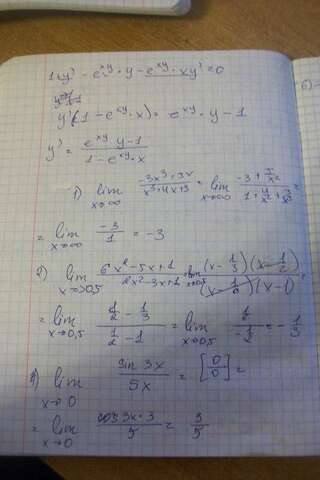 1+y' - e^xy · y - e^xy · xy' = 0
y'(1 - e^xy · x) = e^xy · y - 1
y' = (e^xy y - 1)/(1 - e^xy · x)
1) lim x→∞ (-3x³+3x)/(x³+4x+3) = lim x→∞
= lim x→∞ -3/1 = -3
2) lim x→0,5 (6x²-5x+1)/(2x²-3x+1) = lim x→0,5 (x-1/3)(x-1/2)/
= lim x→0,5 (1/2 - 1/3)/(1/2 - 1) = lim x→0,5 = - 1/3
lim x→0 sin 3x/5x = [0/0] =
= lim x→0 cos 3x·3/5 = 3/5